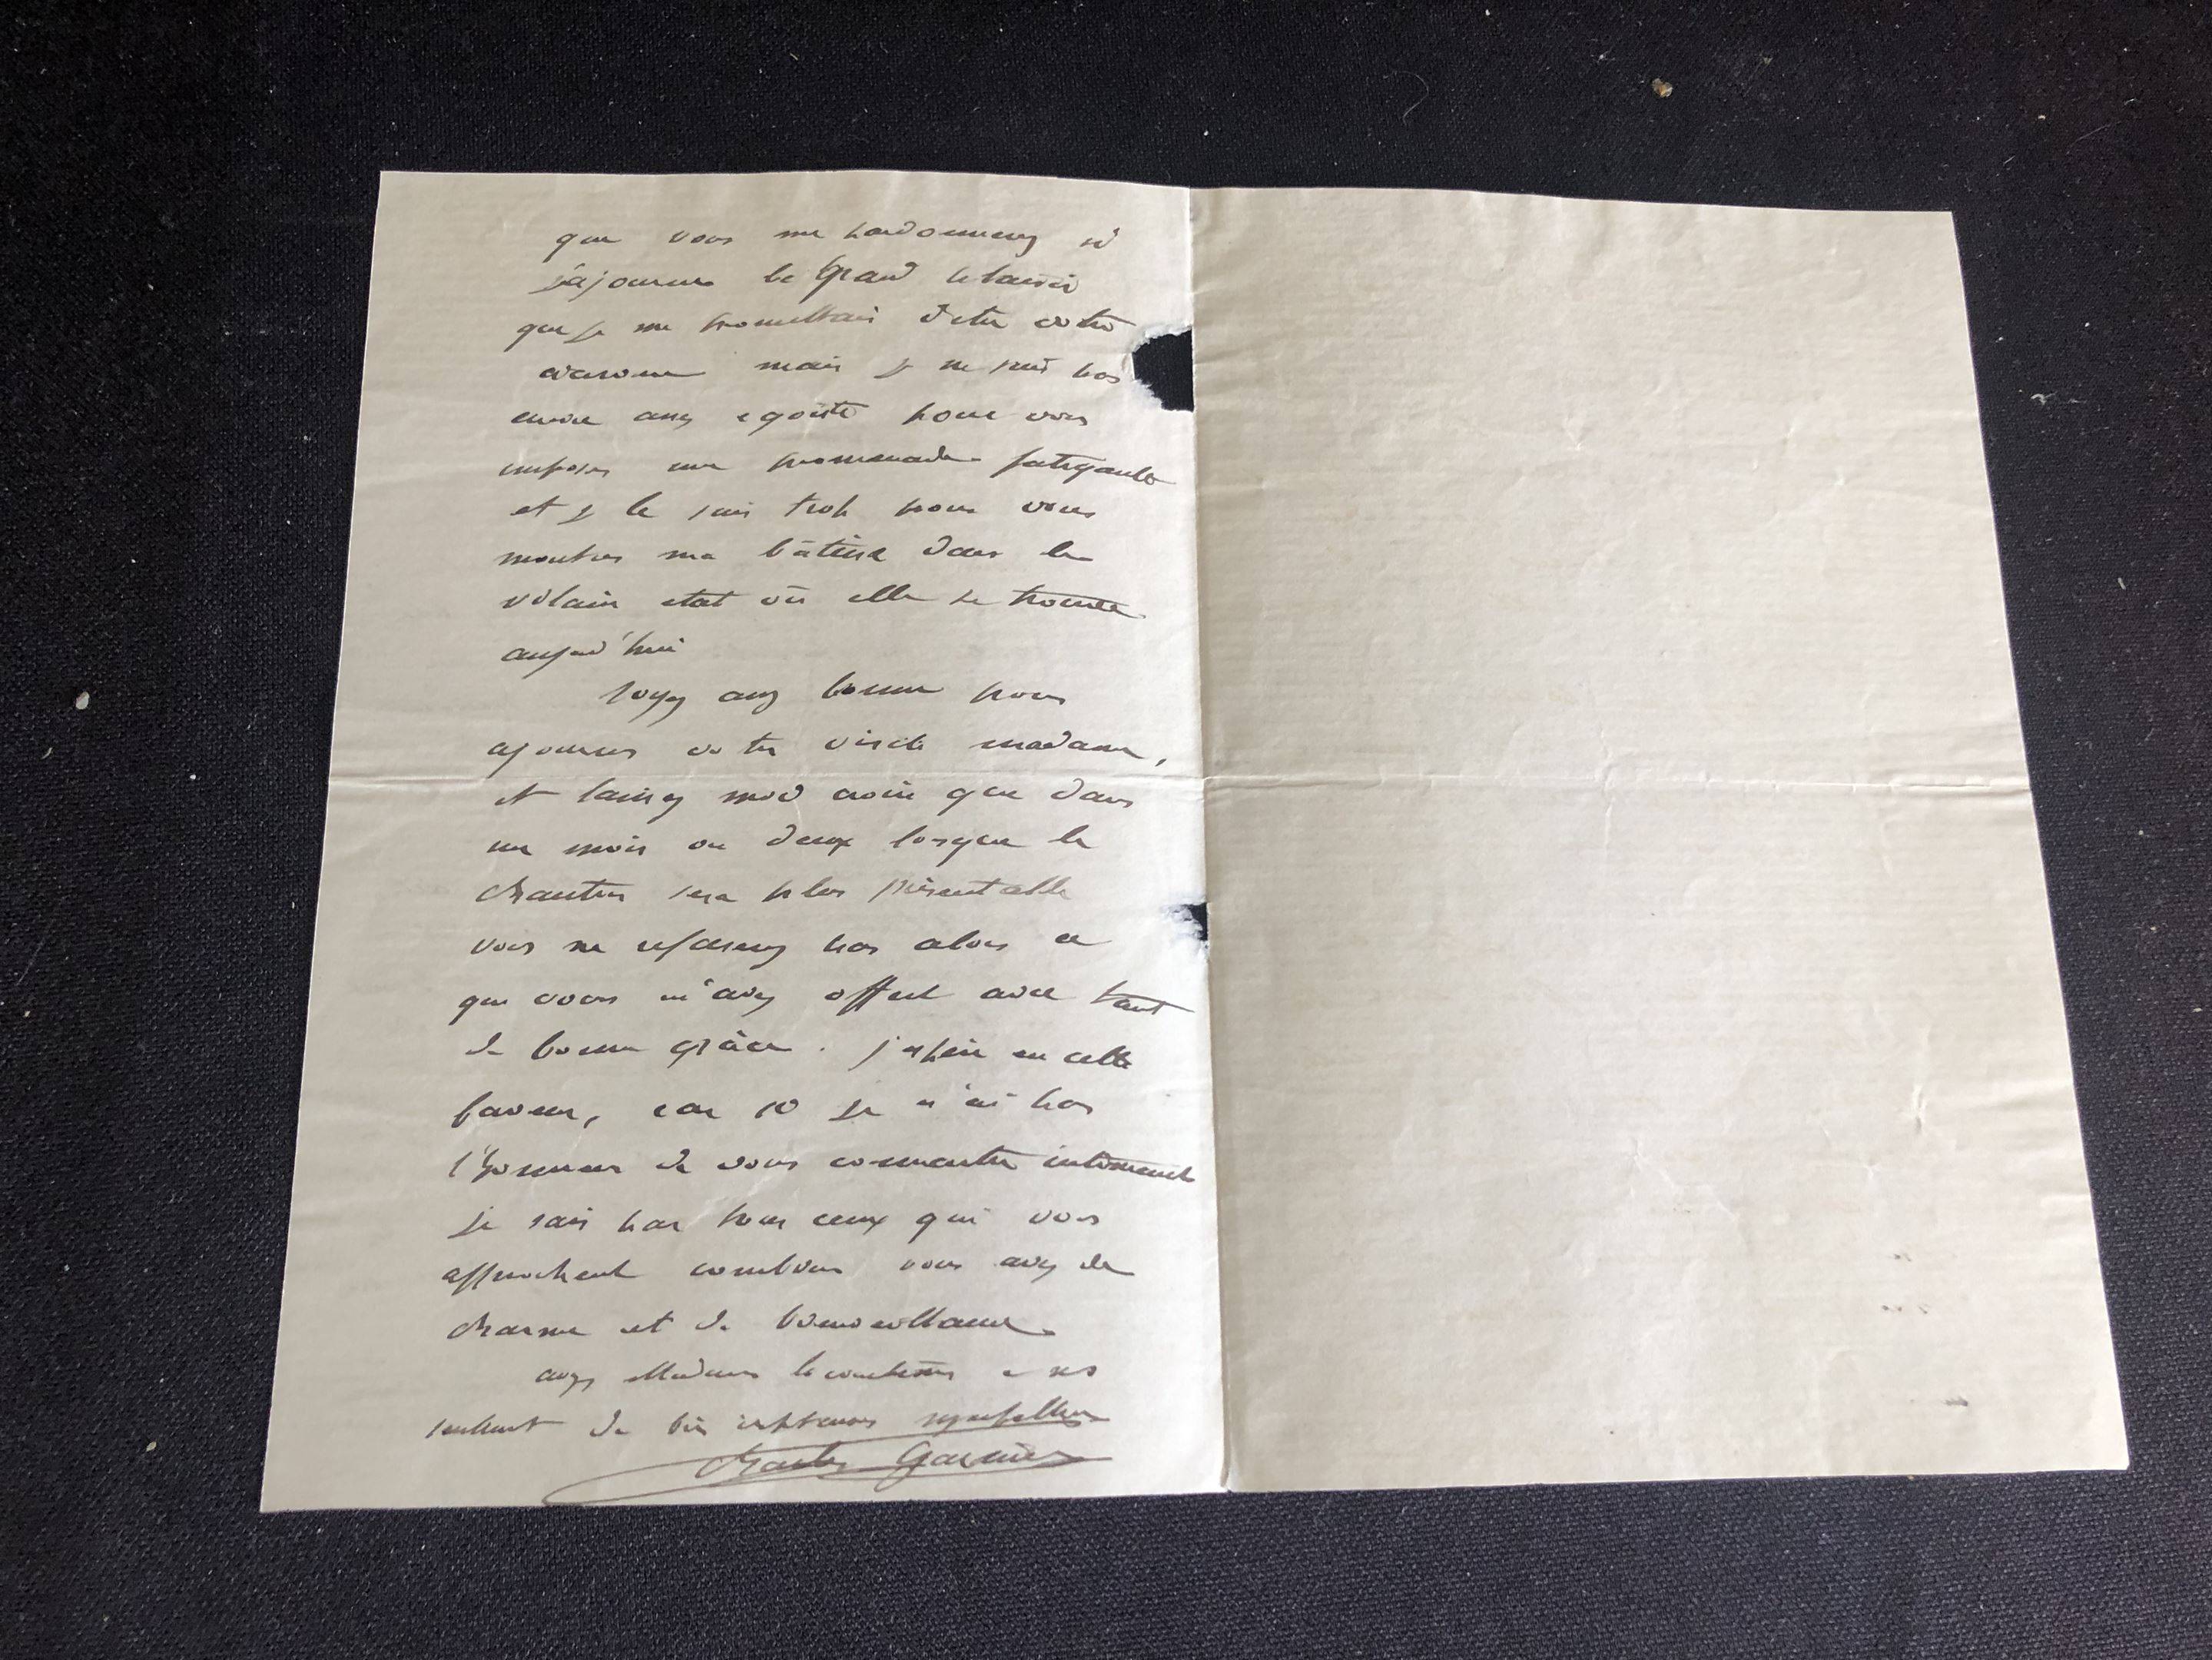 que vous me pardonnerez si
j'ajourne le grand plaisir
que je me promettais d'etre votre
cicerone mais je ne suis pas
encore assez egoiste pour vous
imposer une promenade fatigante
et je le suis trop pour vous
montrer ma bâtisse dans le
vilain etat où elle se trouve
aujourd'hui
soyez assez bonne pour
ajourner votre visite madame,
et laissez moi croire que dans
un mois ou deux lorsque le
chantier sera plus présentable
vous ne refuserez pas alors ce
que vous m'avez offert avec tant
de bonne grâce. j'espère en cette
faveur, car si je n'ai pas
l'honneur de vous connaitre intimement
je sais par tous ceux qui vous
approchent combien vous avez de
charme et de bienveillance.
Madame la comtesse a mes
sentiment de très
Charles Garnier